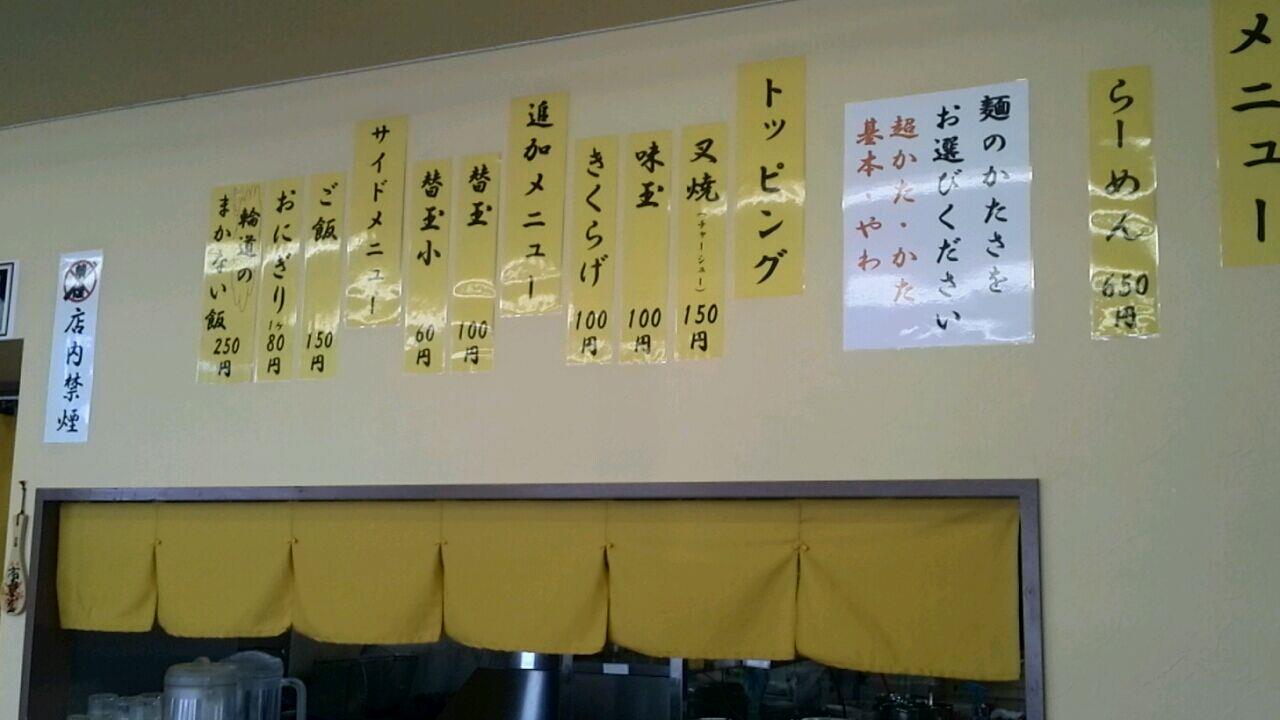 メニュー
らーめん 650円
麺のかたさを
お選びください
超かた・かた
基本・やわ
トッピング
叉焼(チャーシュー) 150円
味玉 100円
きくらげ 100円
追加メニュー
替玉 100円
替玉小 60円
サイドメニュー
ご飯 150円
おにぎり 1ヶ80円
輪道の
まかない飯 250円
店内禁煙